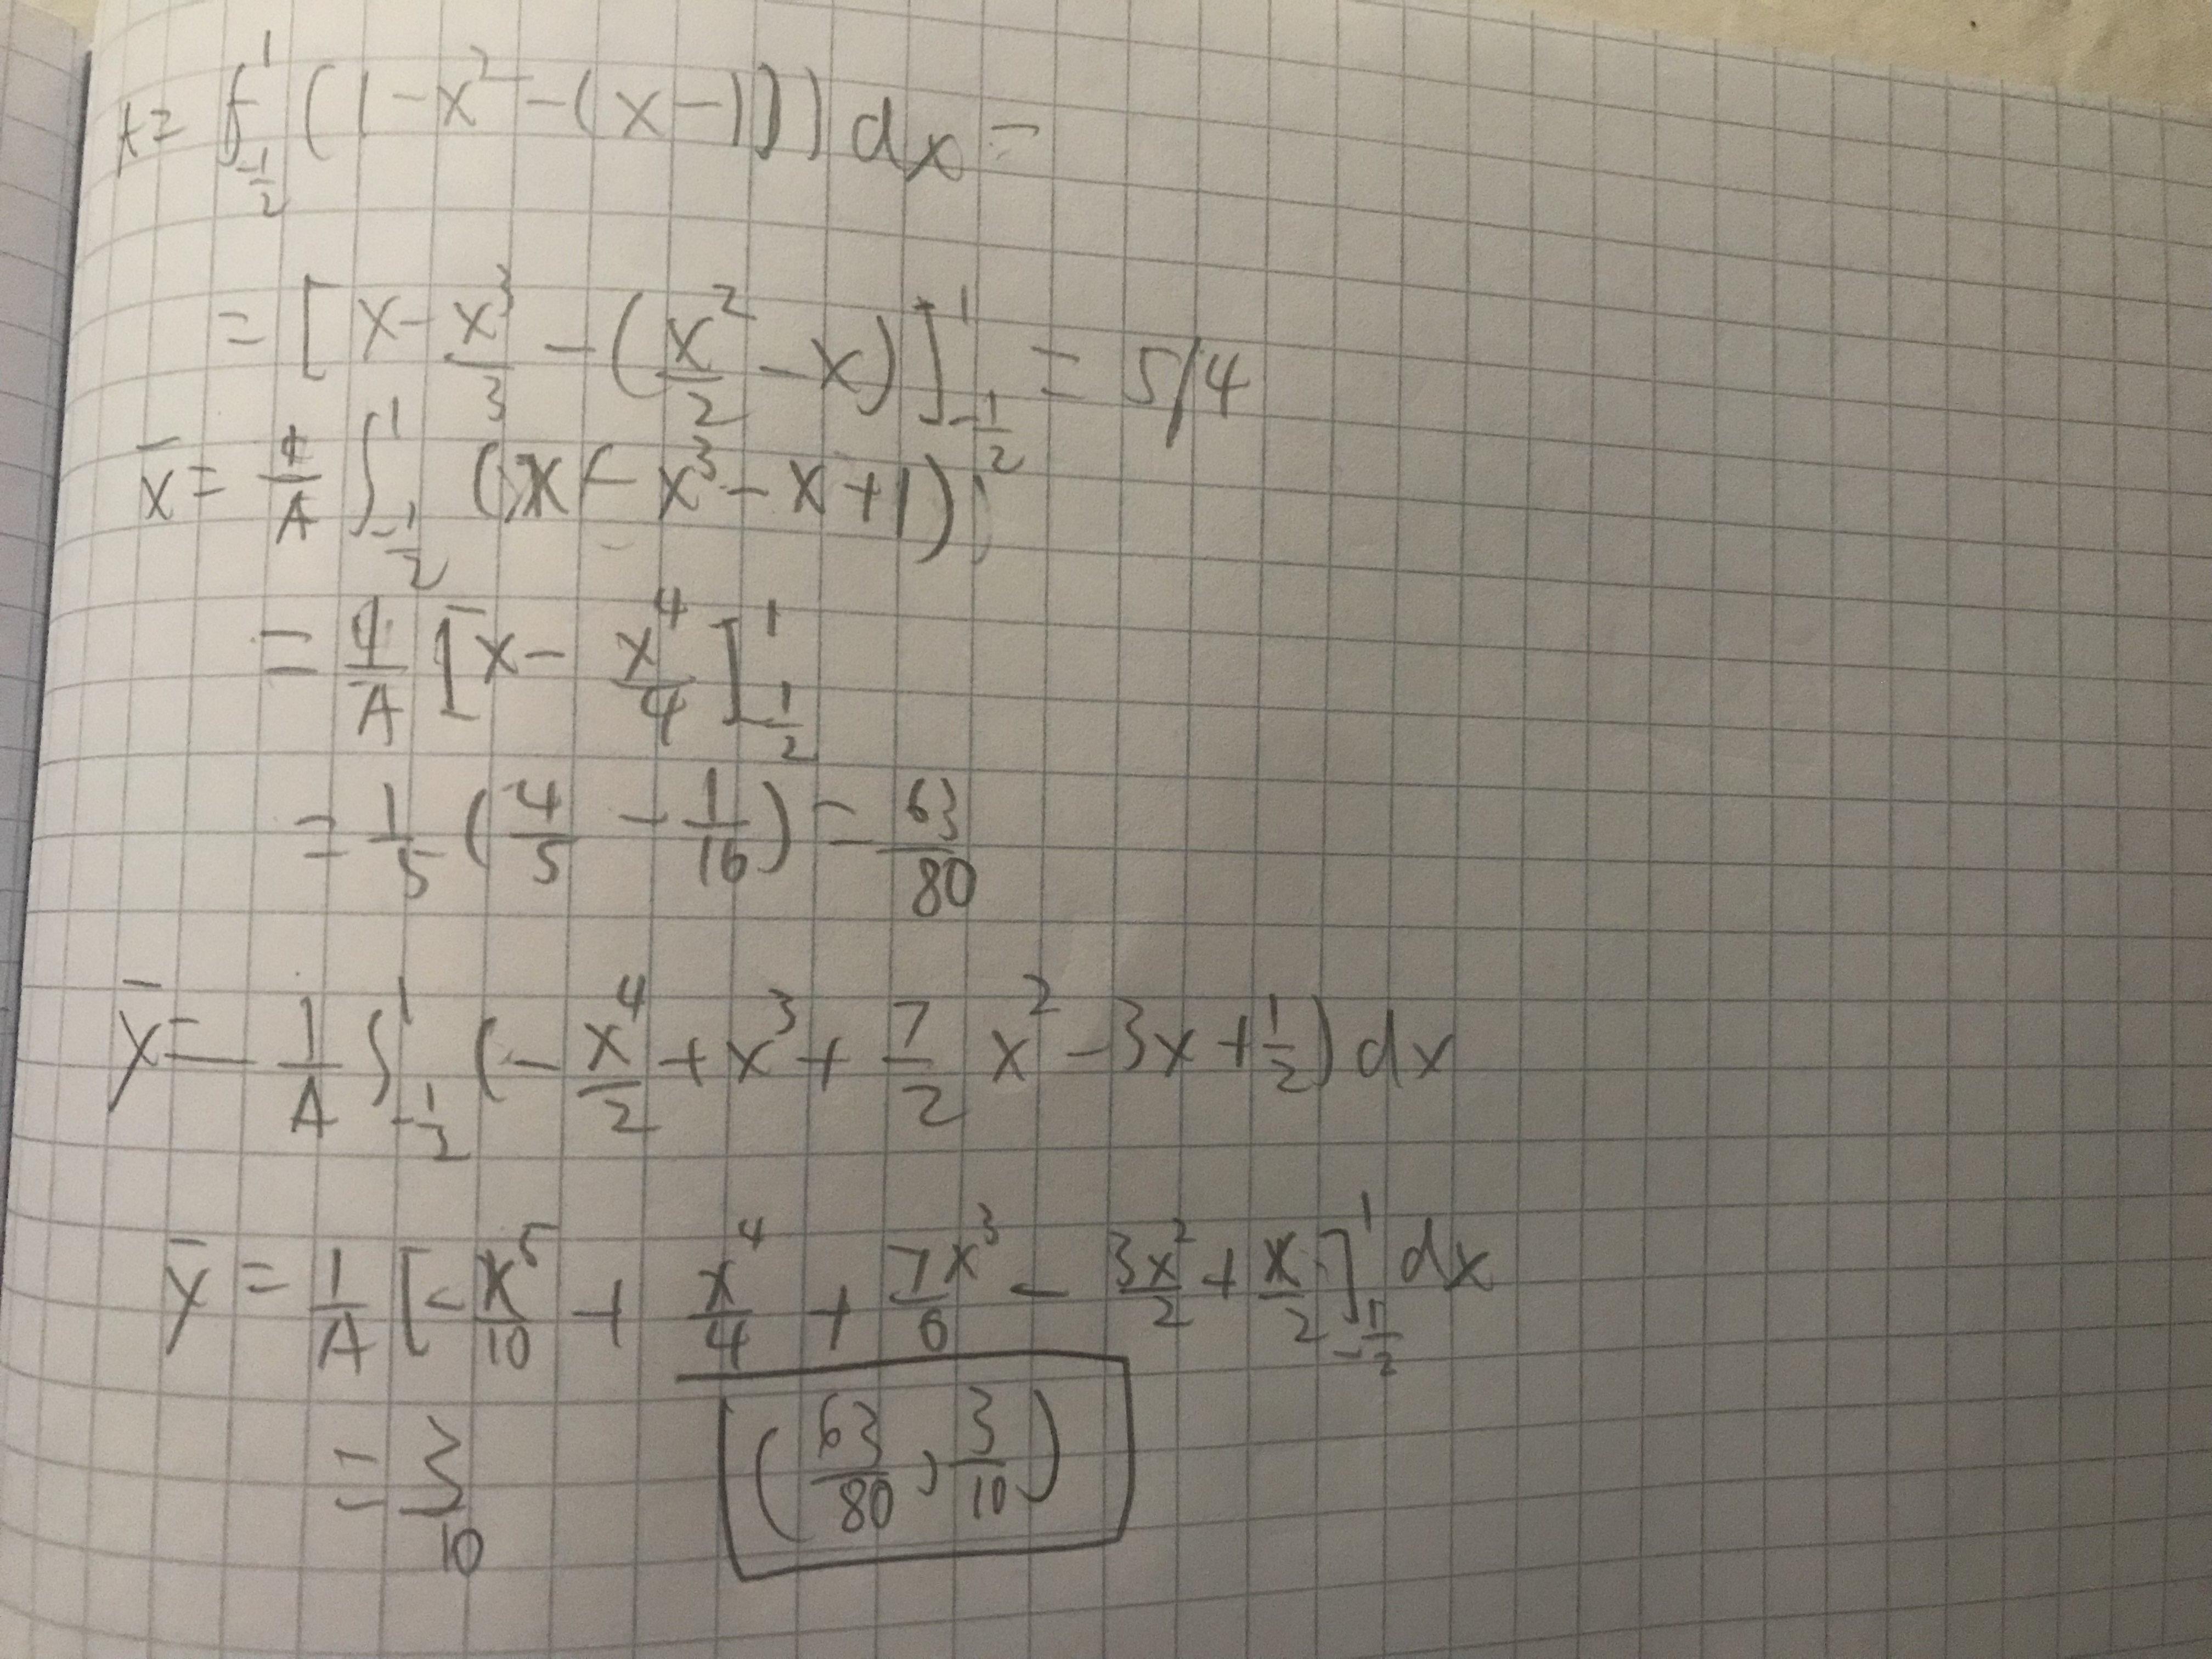 A = ∫_{-1/2}^{1} (1 - x² - (x - 1)) dx =
= [x - x³/3 - (x²/2 - x)]_{-1/2}^{1} = 5/4
x̄ = 4/A ∫_{-1/2}^{1} (x - x³ - x + 1)
= 4/A [x - x⁴/4]_{-1/2}^{1}
= 1/5 (4/5 - 1/16) = 63/80
ȳ = 1/A ∫_{-1/2}^{1} (-x⁴/2 + x³ + 7/2 x² - 3x + 1/2) dx
ȳ = 1/A [-x⁵/10 + x⁴/4 + 7x³/6 - 3x²/2 + x/2]_{-1/2}^{1} dx
= 3/10 (63/80, 3/10)